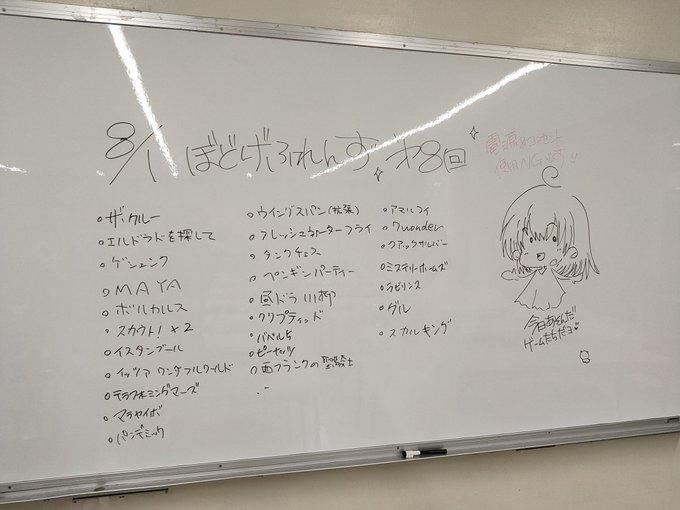 8/1 ぼどげふれんず 第8回
電源&コンセント
使用NGです!!
ザ・クルー
エルドラドを探して
ゲシェンク
MAYA
ボルカルス
スカウト! ×2
イスタンブール
イッツァ ワンダフルワールド
テラフォミングマーズ
マラケイボ
パンデミック
ウイングスパン(拡張)
フレッシュネーターフライ
タンクチェス
ペンギンパーティー
昼ドラ川柳
クリプティッド
バベル
ピーナッツ
西フランクの聖騎士
アマルフィ
7wonder
クアックサルバー
ミステリーホームズ
ラビリンス
グル
スカルキング
今日あそんだ
ゲームたちだヨ